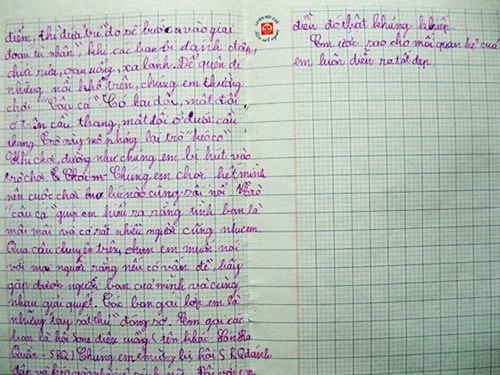 điểm, thì đứa trẻ đó sẽ bước vào giai
đoạn tù nhân", khi các bạn bị đánh đấm,
chửi rủa, oan uổng, xa lánh. Để quên đi
những nỗi khổ trên, chúng em thường
chơi "Câu cá". Có hai đội, một đội
ở trên cầu thang, một đội ở dưới cầu
thang. Trò này mô phỏng lại trò "kéo co"
Khi chơi, dường như chúng em bị hút vào
trò chơi. Chúng em chơi hết mình
nên cuộc chơi lúc nào cũng sôi nổi. Trò
"câu cá" giúp em hiểu ra rằng tình bạn là
mãi mãi và có rất nhiều người cũng như em.
Qua câu chuyện trên, em muốn nói
với mọi người rằng nếu có vấn đề, hãy
gặp được người bạn của mình và cùng
nhau giải quyết. Các bạn gái lớp em là
những tay sát thủ đáng sợ. Em gọi các
bạn là hội điên cuồng (tên khác:
Quân - SRQ) Chúng em thường bị hội SRQ đánh
diễn đó thật khủng khiếp.
Em ước sao cho mối quan hệ của
em luôn diễn ra tốt đẹp.